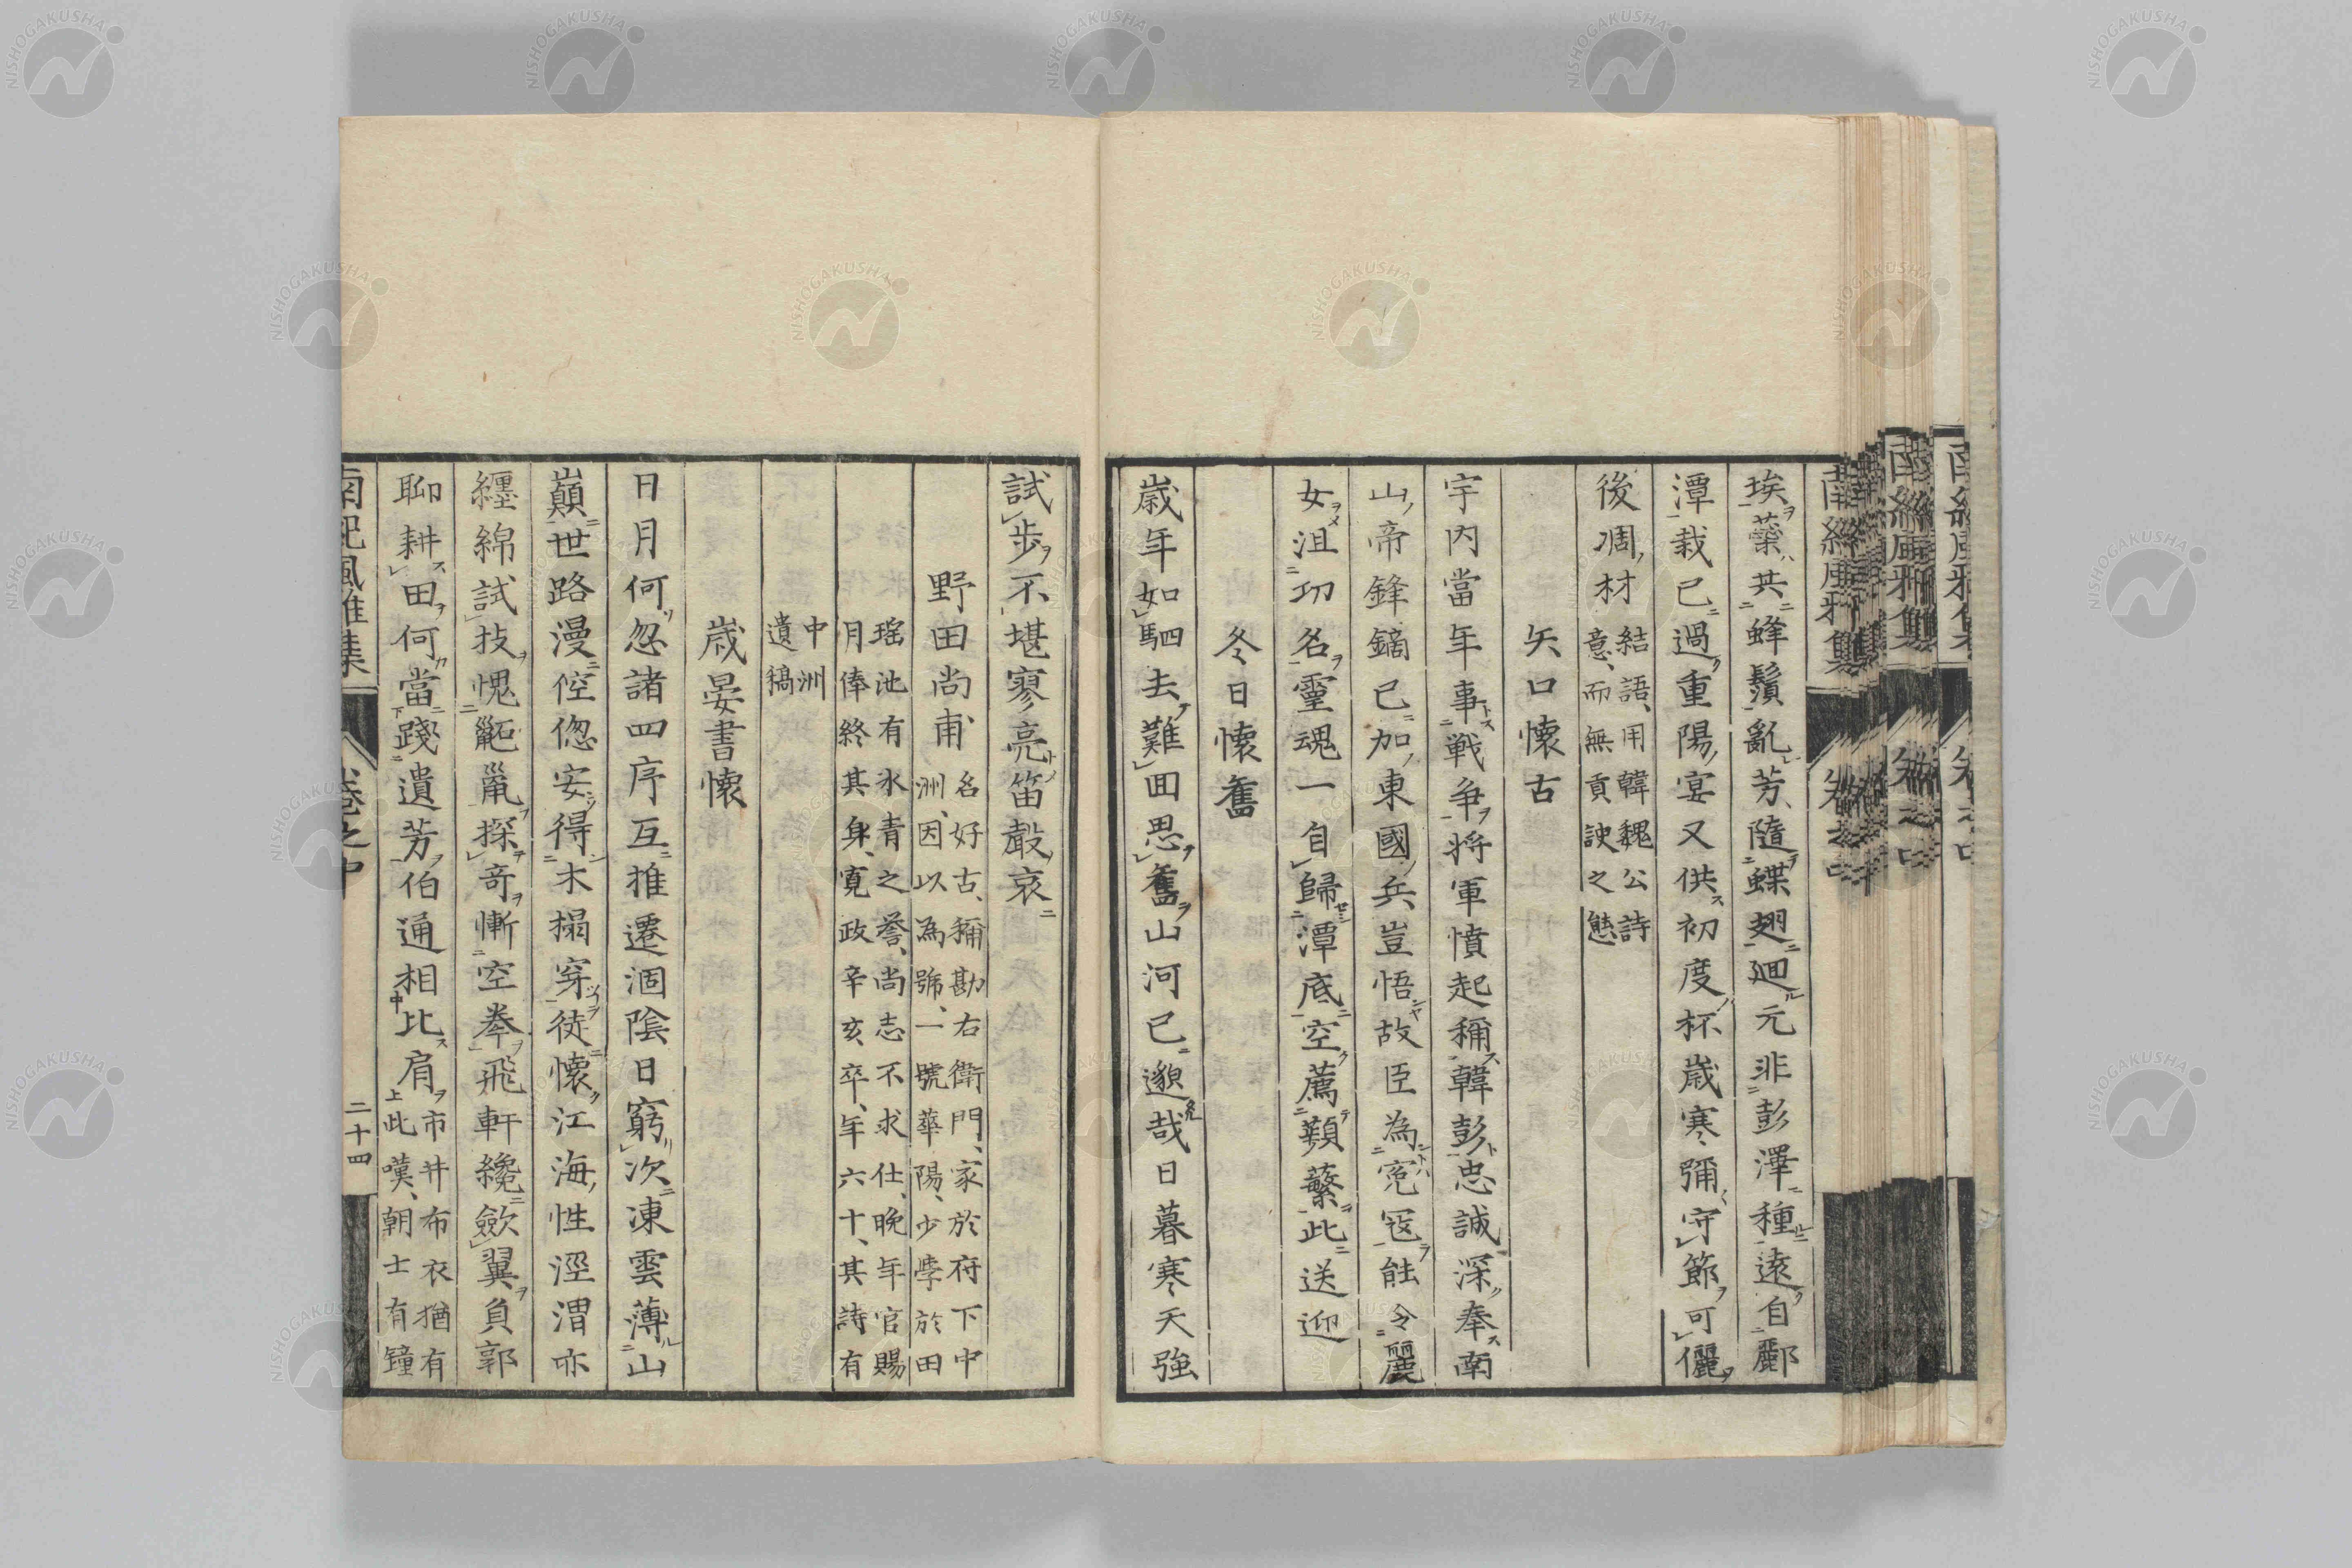 埃蘂共蜂鬚亂芳隨蝶翅廻元非彭澤種遠自酈
潭栽已過重陽宴又供初度杯歲寒彌守節可儷
後凋材
結語用韓魏公詩
意而無貢諛之態
矢口懷古
宇内當年事戰争將軍憤起稱韓彭忠誠深奉南
山帝鋒鏑已加東國兵豈悟故臣為寃冦能令麗
女沮功名靈魂一自歸潭底空薦蘋蘩此送迎
冬日懷舊
歲年如駟去難囬思舊山河已邈哉日暮寒天強
試步不堪寥亮笛聲哀
野田尚甫
名好古稱勘右衛門家於府下中
洲因以為號一號華陽少學於田
瑤池有氷青之譽尚志不求仕晚年官賜
月俸終其身寛政辛亥卒年六十其詩有
中洲
遺稿
歲晏書懷
日月何忽諸四序互推遷涸陰日窮次凍雲薄山
巔世路漫倥偬安得木榻穿徒懷江海性涇渭亦
纒綿試技愧鼯鼠探奇慚空拳飛軒纔歛翼負郭
聊耕田何當踐遺芳伯通相比肩
市井布衣猶有
此嘆朝士有鐘
南紀風雅集
卷之中
二十四
NISHOGAKUSHA